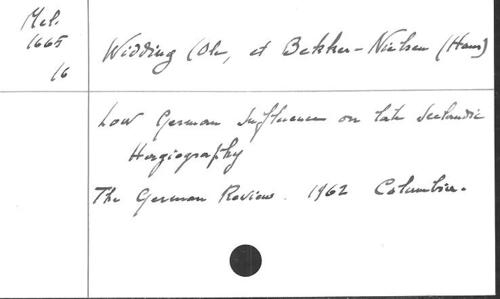 Mel.
1665
16
Widding (Ole, et Bekker-Nielsen (Hans)
Low German Influence on late Icelandic
Hagiography
The German Review. 1962 Columbia.